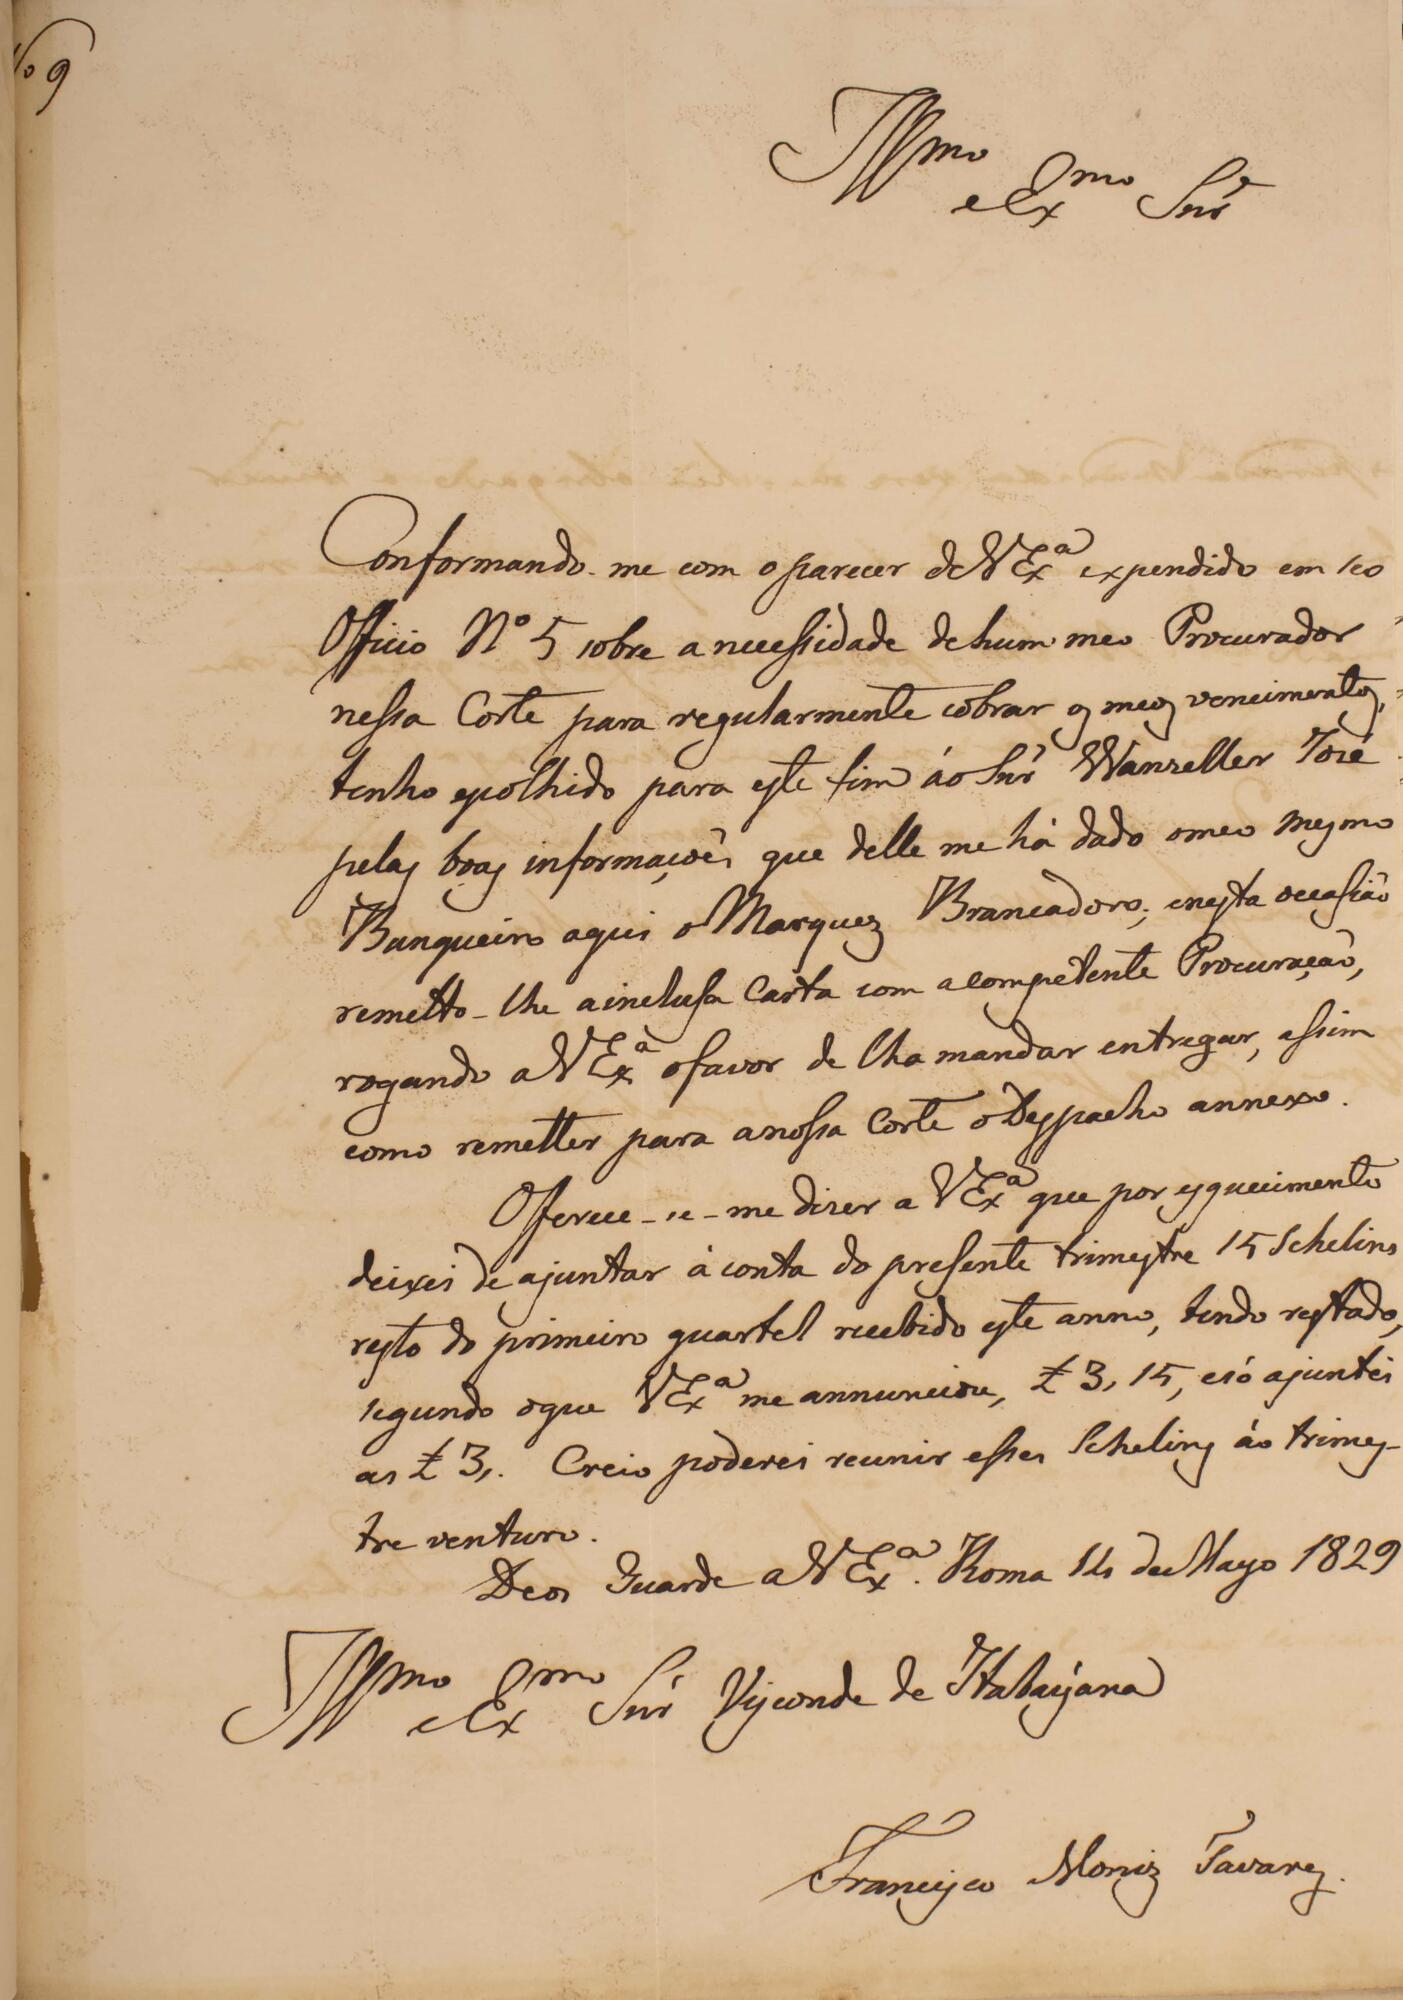 No 9
Illmo e Exmo Snr
Conformando-me com o parecer de V Exª expendido em seo
Officio Nº 5 sobre a necessidade de hum meo Procurador
nessa Corte para regularmente cobrar os meos vencimentos,
tenho escolhido para este fim áo Snr Wanzeller José
pelas boas informaçoẽs que delle me há dado o meo mesmo
Banqueiro aqui o Marquez Brancadoro; e nesta occasião
remetto-lhe a inclusa Carta com a competente Procuração,
rogando a V Exª o favor de lha mandar entregar, assim
como remetter para a nossa Corte o Despacho annexo.
Offerece-se-me dizer a V Exª que por esquecimento
deixei de ajuntar á conta do presente trimestre 15 Schelins
resto do primeiro quartel recebido este anno, tendo restado,
segundo o que V Exª me annunciou, £ 3, 15, e só ajuntei
as £ 3,. Creio poderei reunir esses Schelins áo trimes-
tre venturo.
Deos Guarde a V Exª. Roma 14 de Mayo 1829
Illmo e Exmo Snr Visconde de Itabayana
Francisco Moniz Tavares.